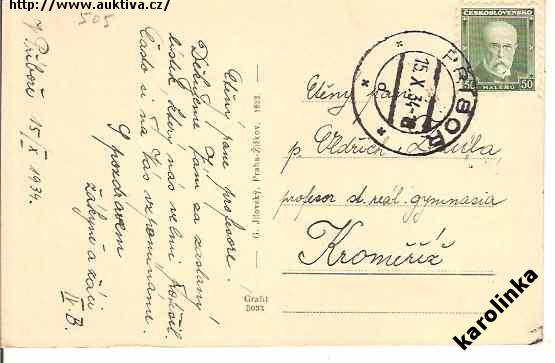 http://www.auktiva.cz/
505
V Příboře 15/X 1934
Ctěný pane profesore!
Děkujeme Vám za zaslaný
lístek, který nás velmi potěšil.
Často si na Vás vzpomínáme.
S pozdravem
žákyně a žáci
IV B.
G. Jilovský, Praha-Žižkov. 1933.
Grafit
5033
ČESKOSLOVENSKO
50 HALÉŘŮ 50
PŘÍBOR
15.X.34
Ctěný pan
p. Oldřich
profesor st. reál. gymnasia
Kroměříž
karolinka